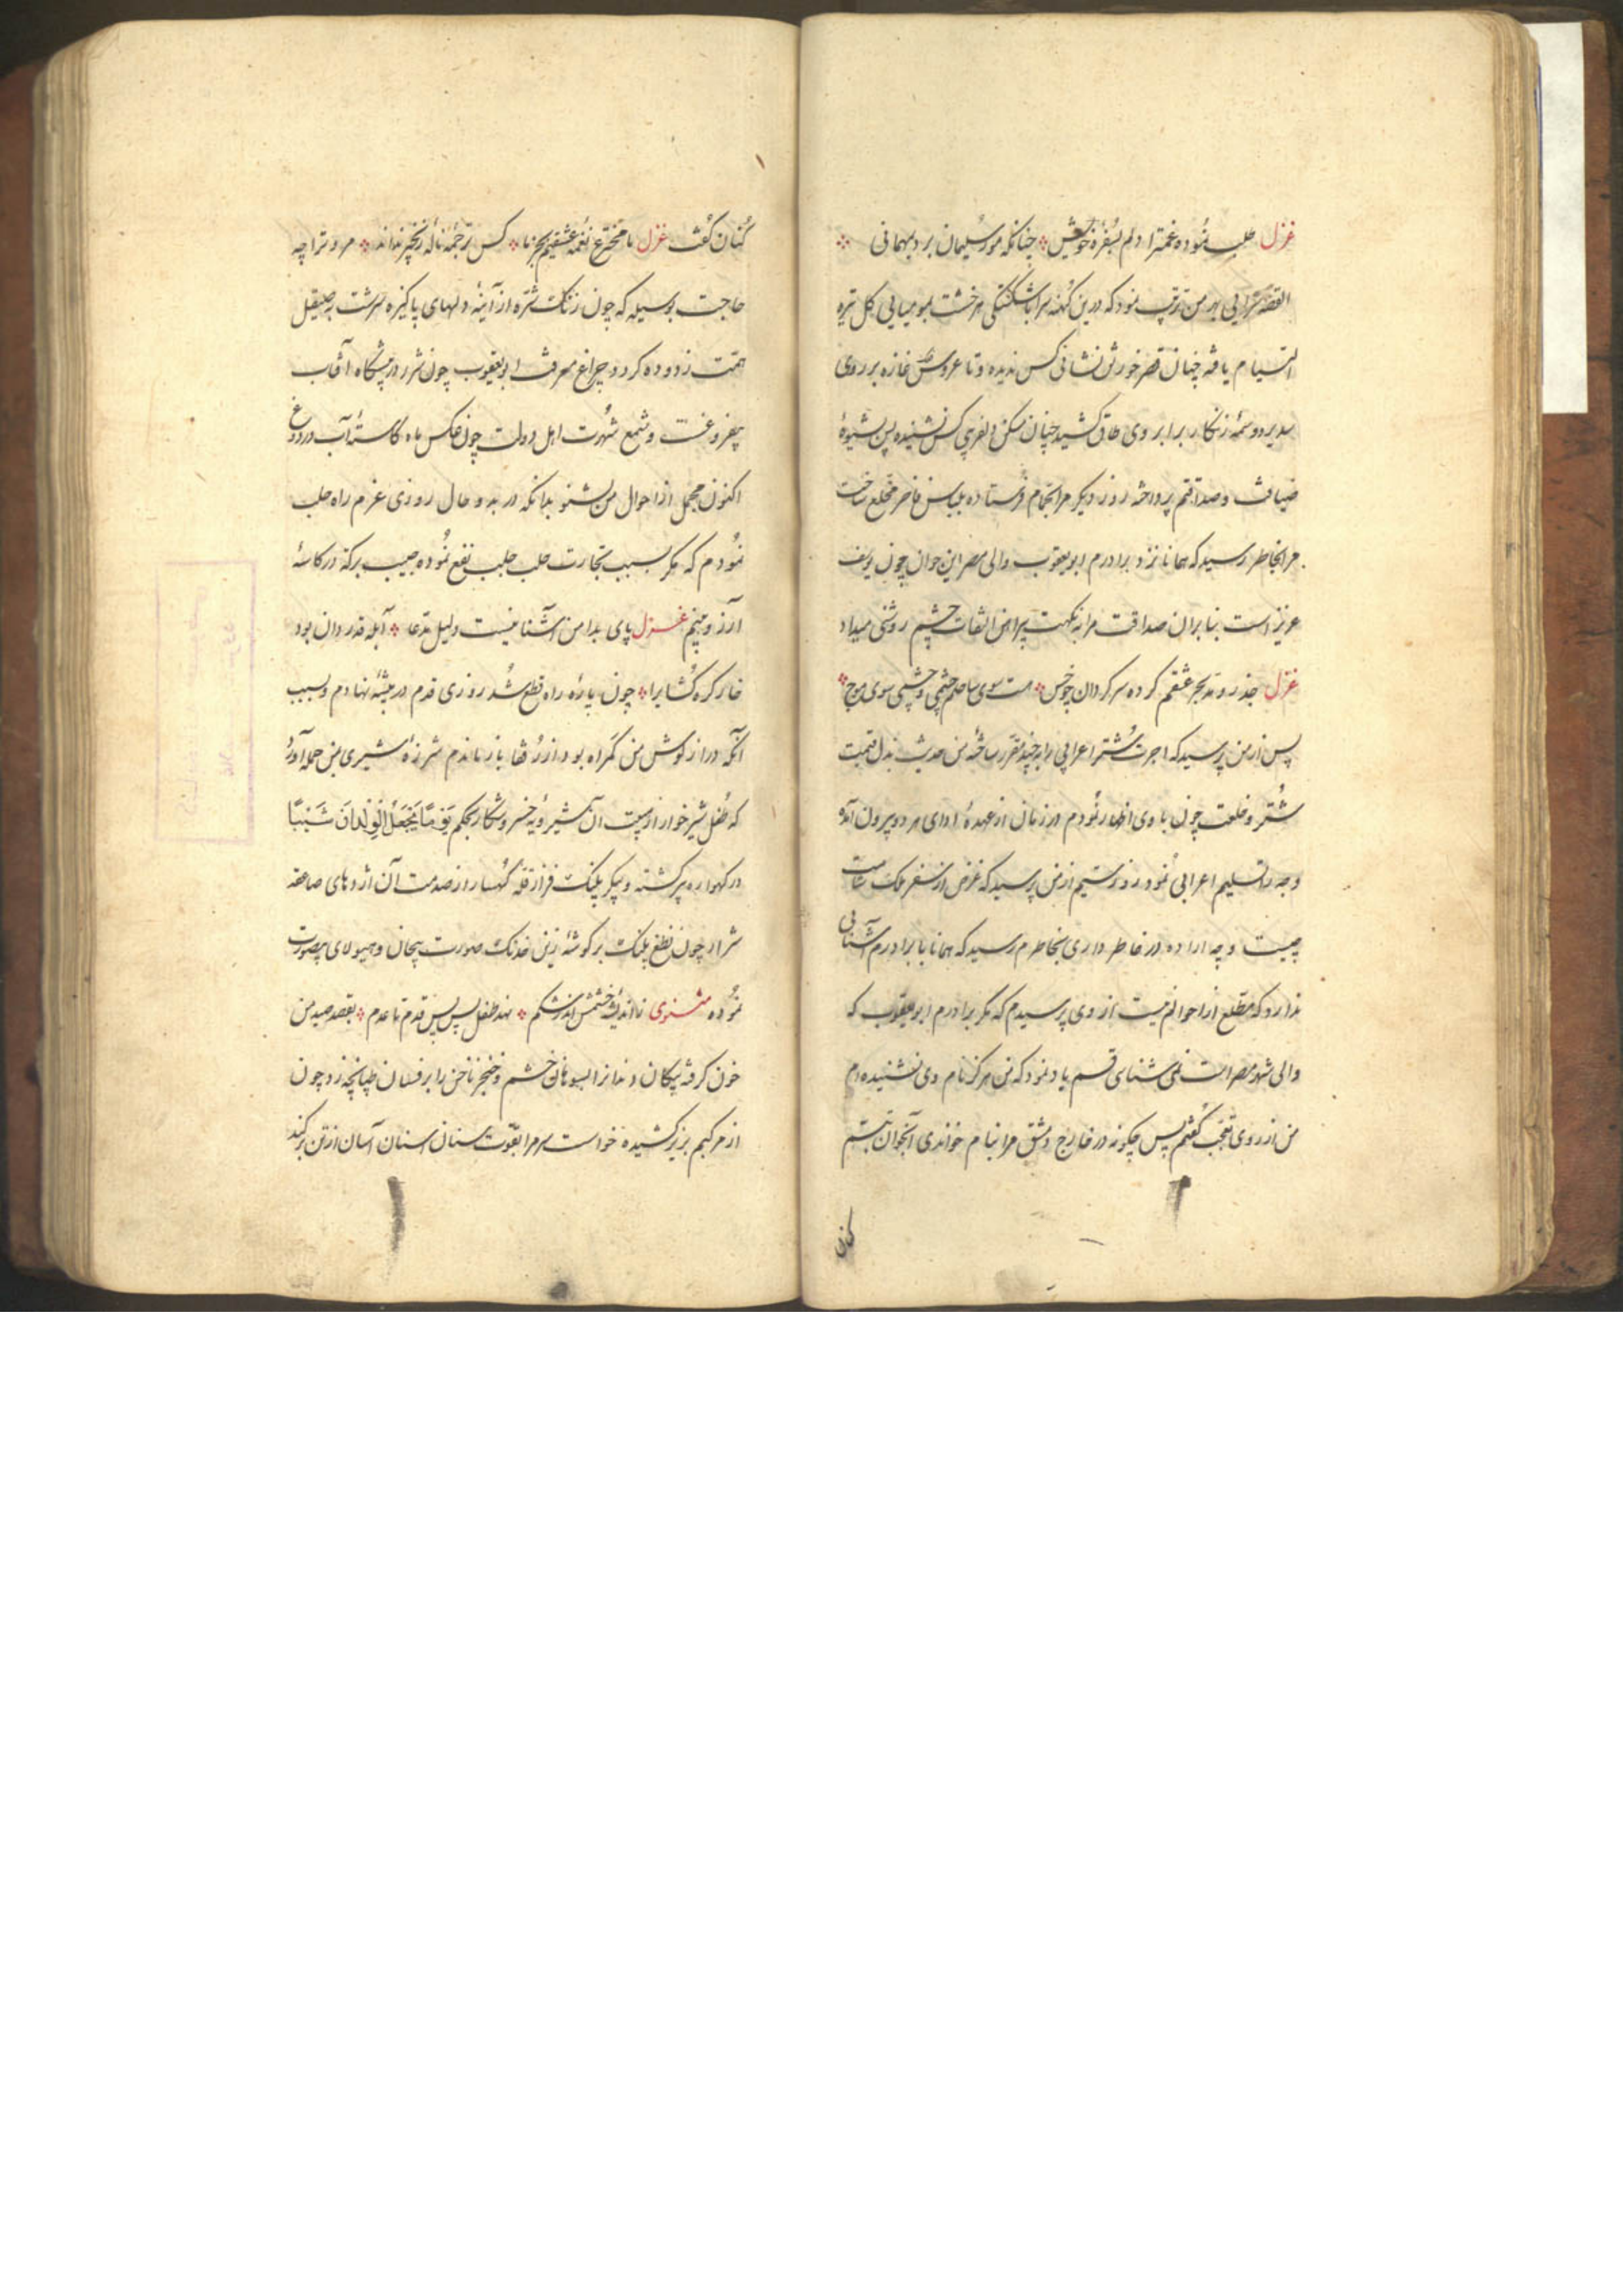 غزل طلب نموده غمت را دلم بسفرهٔ خویش چنانکه مور سلیمان برد بمهمانی
القصه سرایی بهر من ترتیب نمود که درین کهنه سرا با شکستگی هر خشت بمومیایی گل تیره
التیام یافته چنان قصر خورنق نشانی کس ندیده و تا عروس غازه بر روی
وسمهٔ زنگار بر ابروی طاق کشیده چنان مسکن دلفریبی کس نشنیده پس بشیوهٔ
ضیافت و صداقتم پرداخته روز دیگر مرا بحمام فرستاده بلباس فاخر مخلع ساخت
مرا بخاطر رسید که همانا نزد برادرم ابویعقوب والی مصر این جوان چون یوسف
عزیز است بنابران صداقت مرا به نکهت پیراهن التفات چشم روشنی میداد
غزل جذر و مد بحر عشقم کرده سرگردان چو خس هست سوی ساحلم چشمی و چشمی سوی موج
پس از من پرسید که اجرت شتر اعرابی را بچند مقرر ساختهٔ من حدیث بذل قیمت
شتر و خلعت چون با وی اظهار نمودم در زمان از عهدهٔ ادای هر دو بیرون آمده
وجه را تسلیم اعرابی نمود روز سیم از من پرسید که غرض از سفر ملک شامت
چیست و چه اراده در خاطر داری بخاطرم رسید که همانا با برادرم آشنایی
ندارد که مطلع از احوالم نیست از وی پرسیدم که مگر برادرم ابویعقوب که
والی شهر مصر است نمی شناسی قسم یاد نمود که من هرگز نام وی نشنیده ام
من از روی تعجب گفتم پس چگونه در خارج دمشق مرا بنام خواندی آنجوان تبسم
کنان
کنان گفت غزل تا مخترع نغمهٔ عشقیم بجز ما کس ترجمهٔ نالهٔ زنجیر نداند مر و ترا چه
حاجت بوسیله که چون زنگ شره از آینهٔ دلهای پاکیزه سرشت بصیقل
همت زدوده گردد چراغ معرفت ابویعقوب چون شرر در پیشگاه آفتاب
بیفروغست و شمع شهرت اهل دولت چون عکس ماه کاسته آب در دروغ
اکنون مجمل از احوال من بشنو بدانکه در بدو حال روزی عزم راه حلب
نمودم که مگر بسبب تجارت حلب جلب نفع نموده جیب برکة در کاسهٔ
آرزو بینم غزل پای بدامن آشنا نیست دلیل مدعا آبله قدردان بود
خار گره گشای را چون پارهٔ راه قطع شد روزی قدم در بیشهٔ نهادم و بسبب
آنکه درازگوش من گمراه بود از رفقا باز ماندم شرزهٔ شیری بمن حمله آورد
که طفل شیرخوار از هیبت آن شیرویهٔ خسرو شکار بحکم یَوْمًا یَجْعَلُ الْوِلْدانَ شَیْبًا
در گهواره پیر گشته و پیکر پلنگ فراز قلهٔ کهسار از صدمت آن اژدهای صاعقه
شرار چون نطع پلنگ بر گوشهٔ زین خدنگ صورت بیجان و هیولای بیصورت
نموده مثنوی ز اندیشهٔ خشمش اندر شکم نهد طفل پس پس قدم تا عدم بقصد صید من
خون گرفته پیکان دندانرا بسوهان خشم و خنجر ناخن را بر فسان طپانچه زد چون
از مرکبم بزیر کشیده خواست سرم را بقوت سنان اسنان آسان از تن برکند